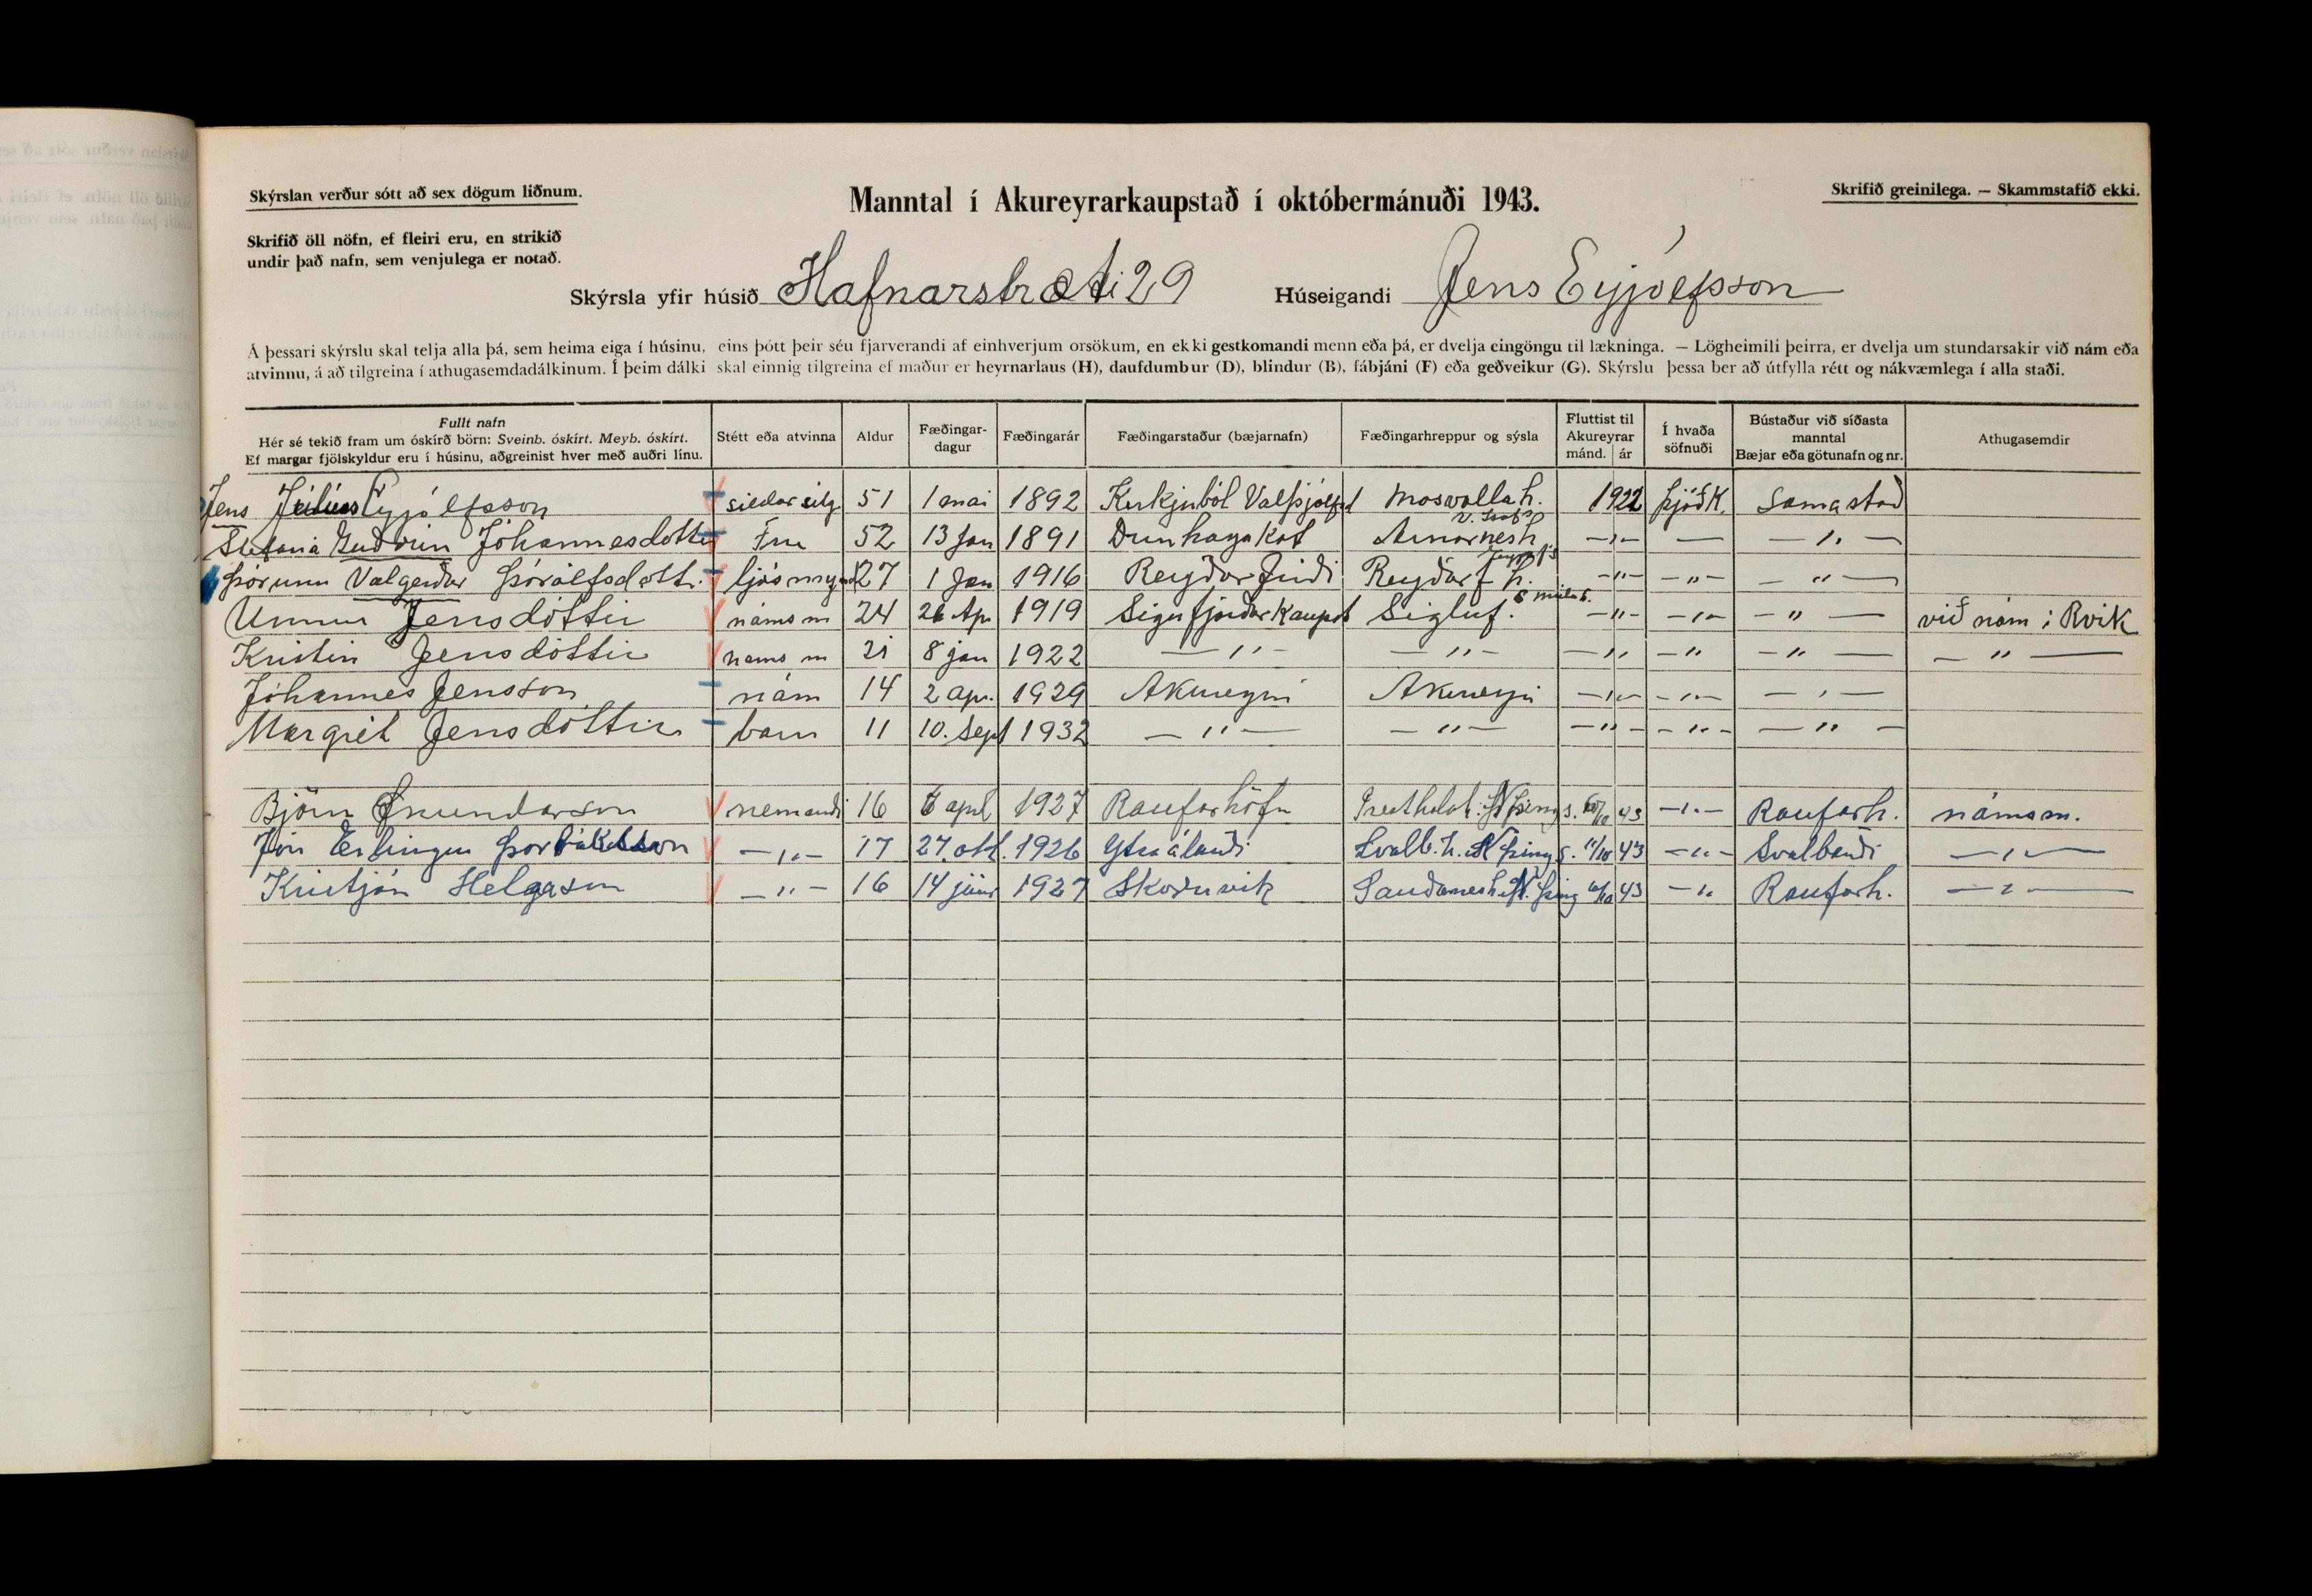 Skýrslan verður sótt að sex dögum liðnum.
Manntal í Akureyrarkaupstað í októbermánuði 1943.
Skrifið greinilega. — Skammstafið ekki.
Skrifið öll nöfn, ef fleiri eru, en strikið
undir það nafn, sem venjulega er notað.
Skýrsla yfir húsið Hafnarstræti 29 Húseigandi Jens Eyjólfsson
Á þessari skýrslu skal telja alla þá, sem heima eiga í húsinu, eins þótt þeir séu fjarverandi af einhverjum orsökum, en ekki gestkomandi menn eða þá, er dvelja eingöngu til lækninga. — Lögheimili þeirra, er dvelja um stundarsakir við nám eða
atvinnu, á að tilgreina í athugasemdadálkinum. Í þeim dálki skal einnig tilgreina ef maður er heyrnarlaus (H), daufdumbur (D), blindur (B), fábjáni (F) eða geðveikur (G). Skýrslu þessa ber að útfylla rétt og nákvæmlega í alla staði.
Fullt nafn
Hér sé tekið fram um óskírð börn: Sveinb. óskírt. Meyb. óskírt.
Ef margar fjölskyldur eru í húsinu, aðgreinist hver með auðri línu.
Stétt eða atvinna
Aldur
Fæðingar-
dagur
Fæðingarár
Fæðingarstaður (bæjarnafn)
Fæðingarhreppur og sýsla
Fluttist til
Akureyrar
mánd. ár
Í hvaða
söfnuði
Bústaður við síðasta
manntal
Bæjar eða götunafn og nr.
Athugasemdir
Jens Júlíus Eyjólfsson 51 1 mai 1892 Kirkjuból Valþjófsd Mosvallah. 1922 þjóðk. Sama stað
V. Ísafs.
Stefania Guðrún Jóhannesdottir Frú 52 13 Jan 1891 Dunhaga Kot Arnarnesh — „ — — — „ —
Þórunn Valgerður Þórólfsdótt. 27 1 Jan 1916 Reyðarfirði Reyðarf. h. — „ — — „ — — „ —
S múlas.
Unnur Jensdóttir náms m 24 26 Ap 1919 Siglufjörðar Kaupst Sigluf. — „ — — „ — — „ — við nám í Rvík
Kristín Jensdóttir nams m 21 8 jan 1922 — „ — — „ — — „ — „ — „ — — „ —
Jóhannes Jensson nám 14 2 ap. 1929 Akureyri Akureyri — „ — — „ — — „ —
Margrét Jensdóttir barn 11 10. Sept 1932 — „ — — „ — — „ — — „ — — „ —
Björn nemandi 16 6 apríl 1927 Raufarhöfn N Þing s. 43 — „ — Raufarh. námsm.
Jón Erlingur Þorláksson — „ — 17 27. okt. 1926 Ytra álandi Svalb. h. N Þing s. 11/10 43 — „ — Svalbarði — „ —
Kristján Helgason — „ — 16 14 júní 1927 Skoruvík Sauðanesh. N. Þing 43 — „ Raufarh. — „ —